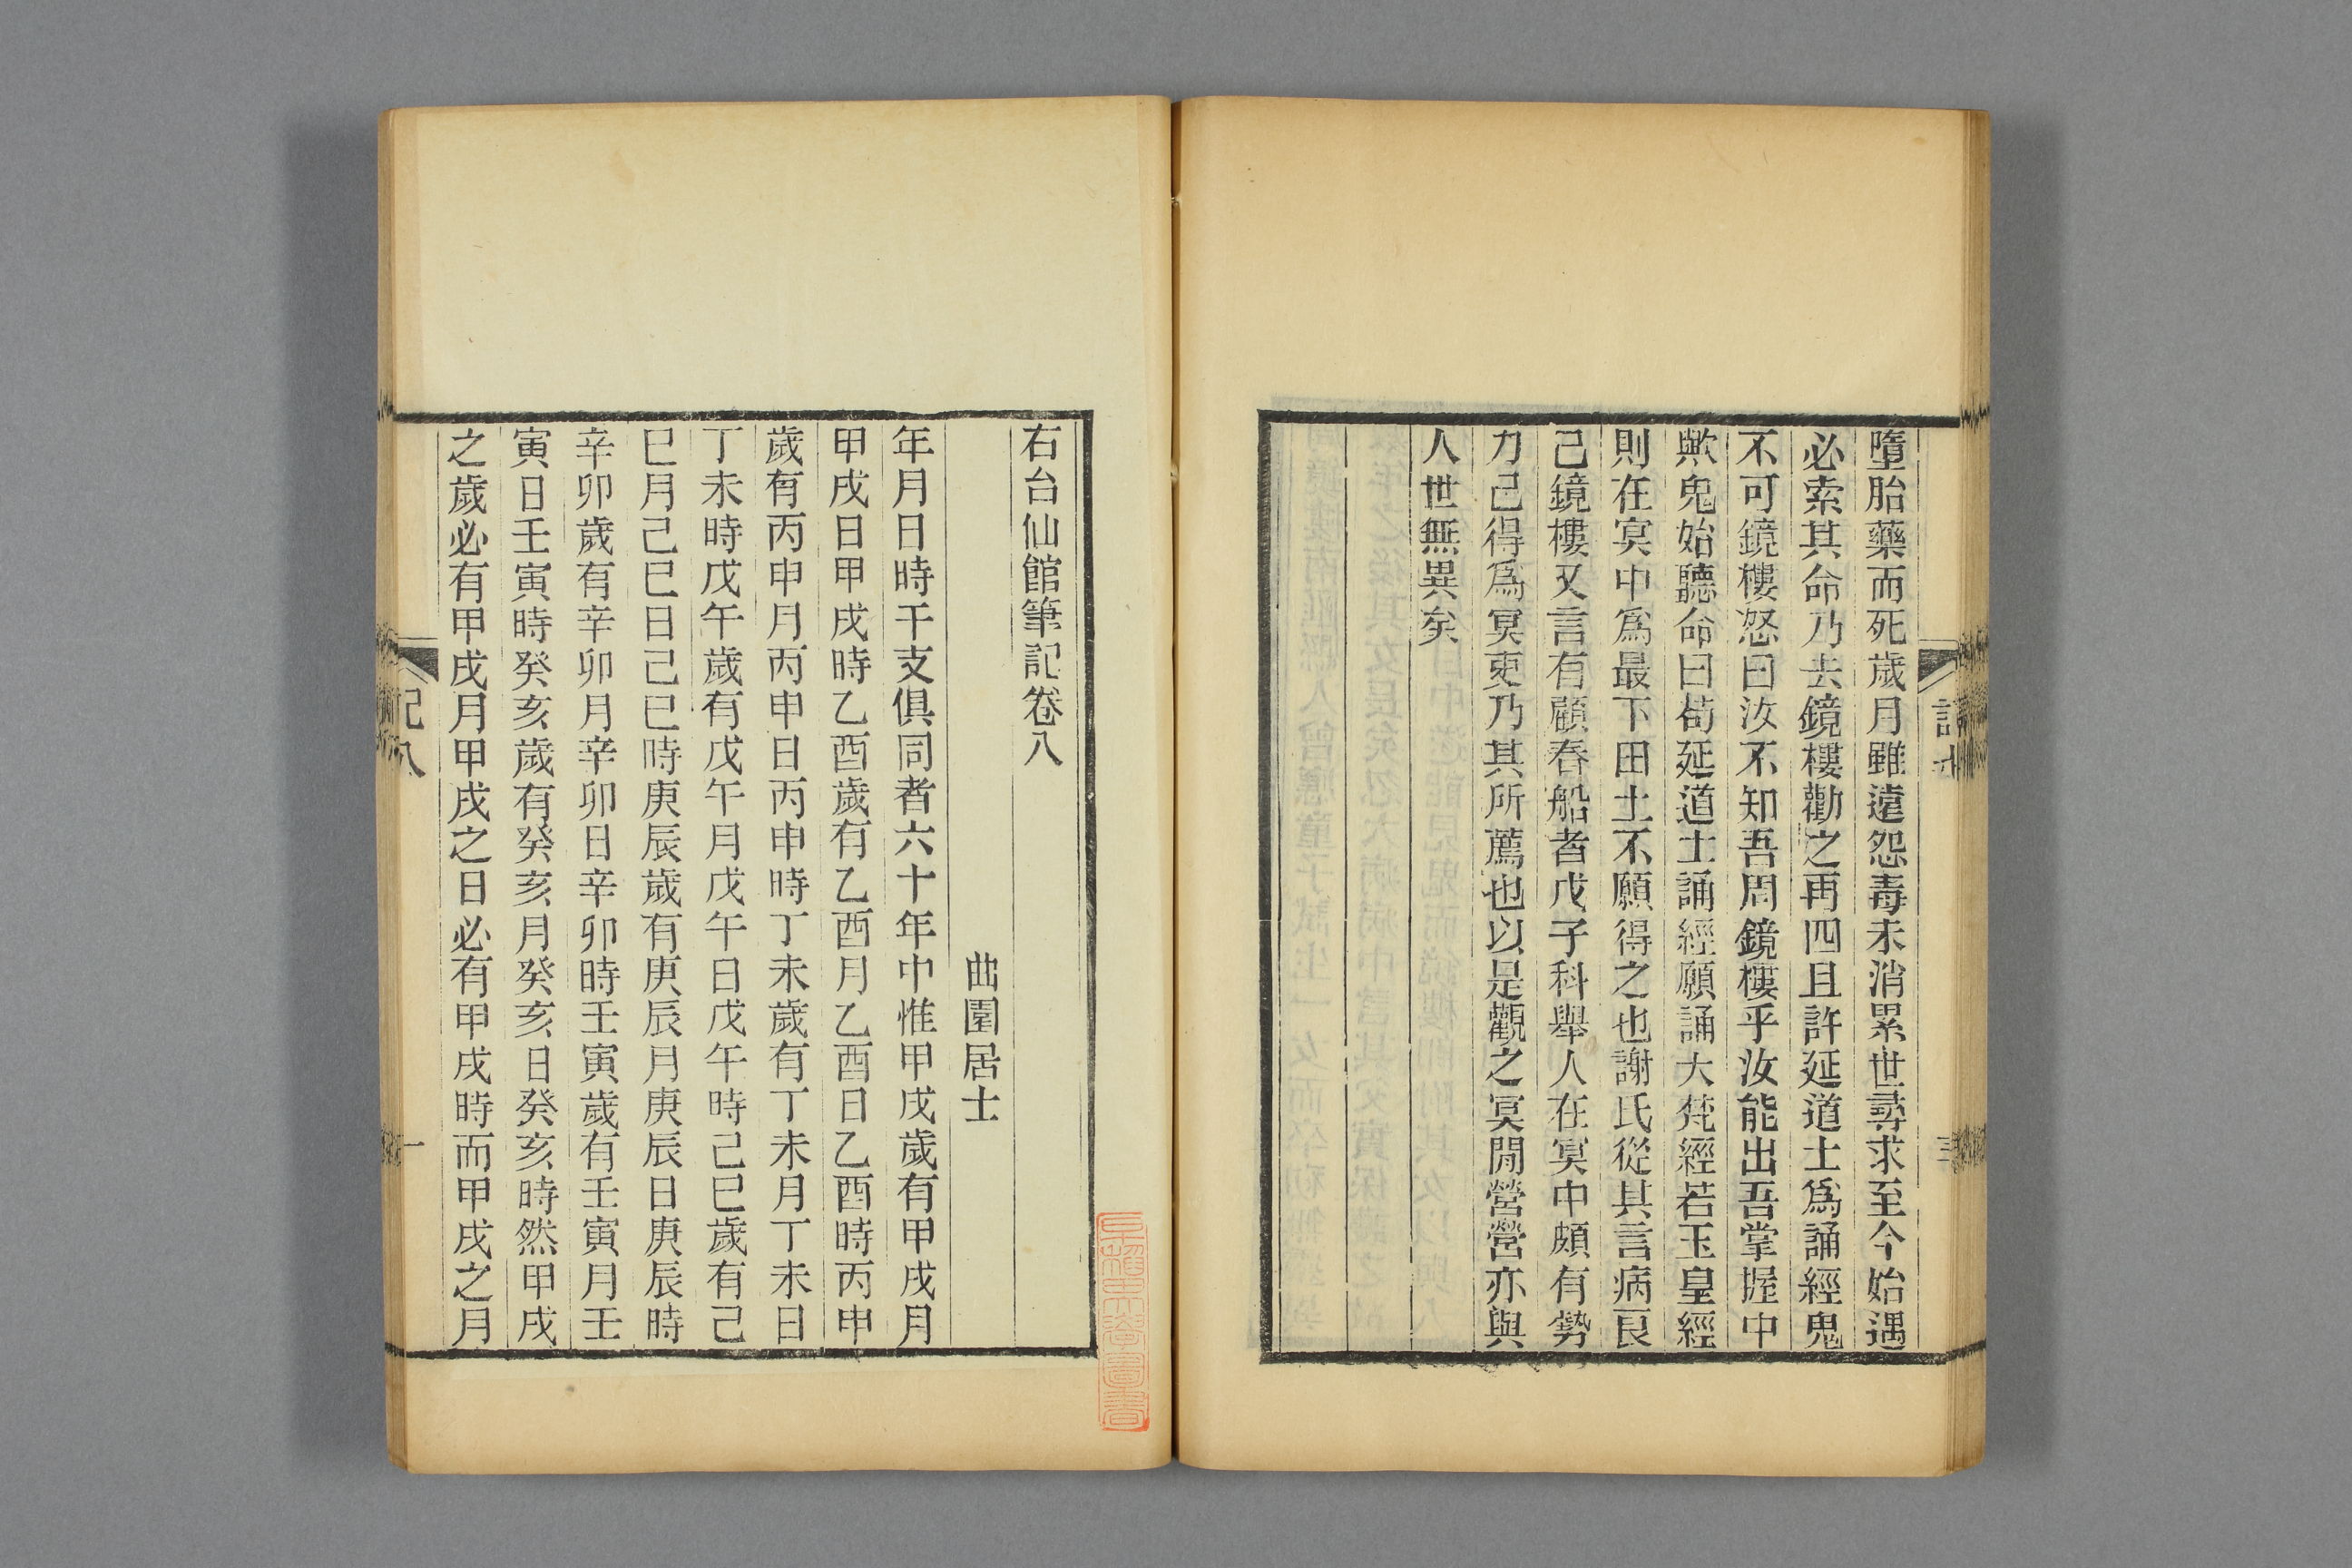 墮胎藥而死歲月雖遠怨毒未消累世尋求至今始遇
必索其命乃去鏡樓勸之再四且許延道士爲誦經鬼
不可鏡樓怒曰汝不知吾周鏡樓乎汝能出吾掌握中
歟鬼始聽命曰茍延道士誦經願誦大梵經若玉皇經
則在冥中爲最下田土不願得之也謝氏從其言病良
已鏡樓又言有顧春船者戊子科舉人在冥中頗有勢
力己得爲冥吏乃其所薦也以是觀之冥閒營營亦與
人世無異矣
右台仙館筆記卷八
曲園居士
年月日時干支俱同者六十年中惟甲戌歲有甲戌月
甲戌日甲戌時乙酉歲有乙酉月乙酉日乙酉時丙申
歲有丙申月丙申日丙申時丁未歲有丁未月丁未日
丁未時戊午歲有戊午月戊午日戊午時己巳歲有己
巳月己巳日己巳時庚辰歲有庚辰月庚辰日庚辰時
辛卯歲有辛卯月辛卯日辛卯時壬寅歲有壬寅月壬
寅日壬寅時癸亥歲有癸亥月癸亥日癸亥時然甲戌
之歲必有甲戌月甲戌之日必有甲戌時而甲戌之月
記八
一